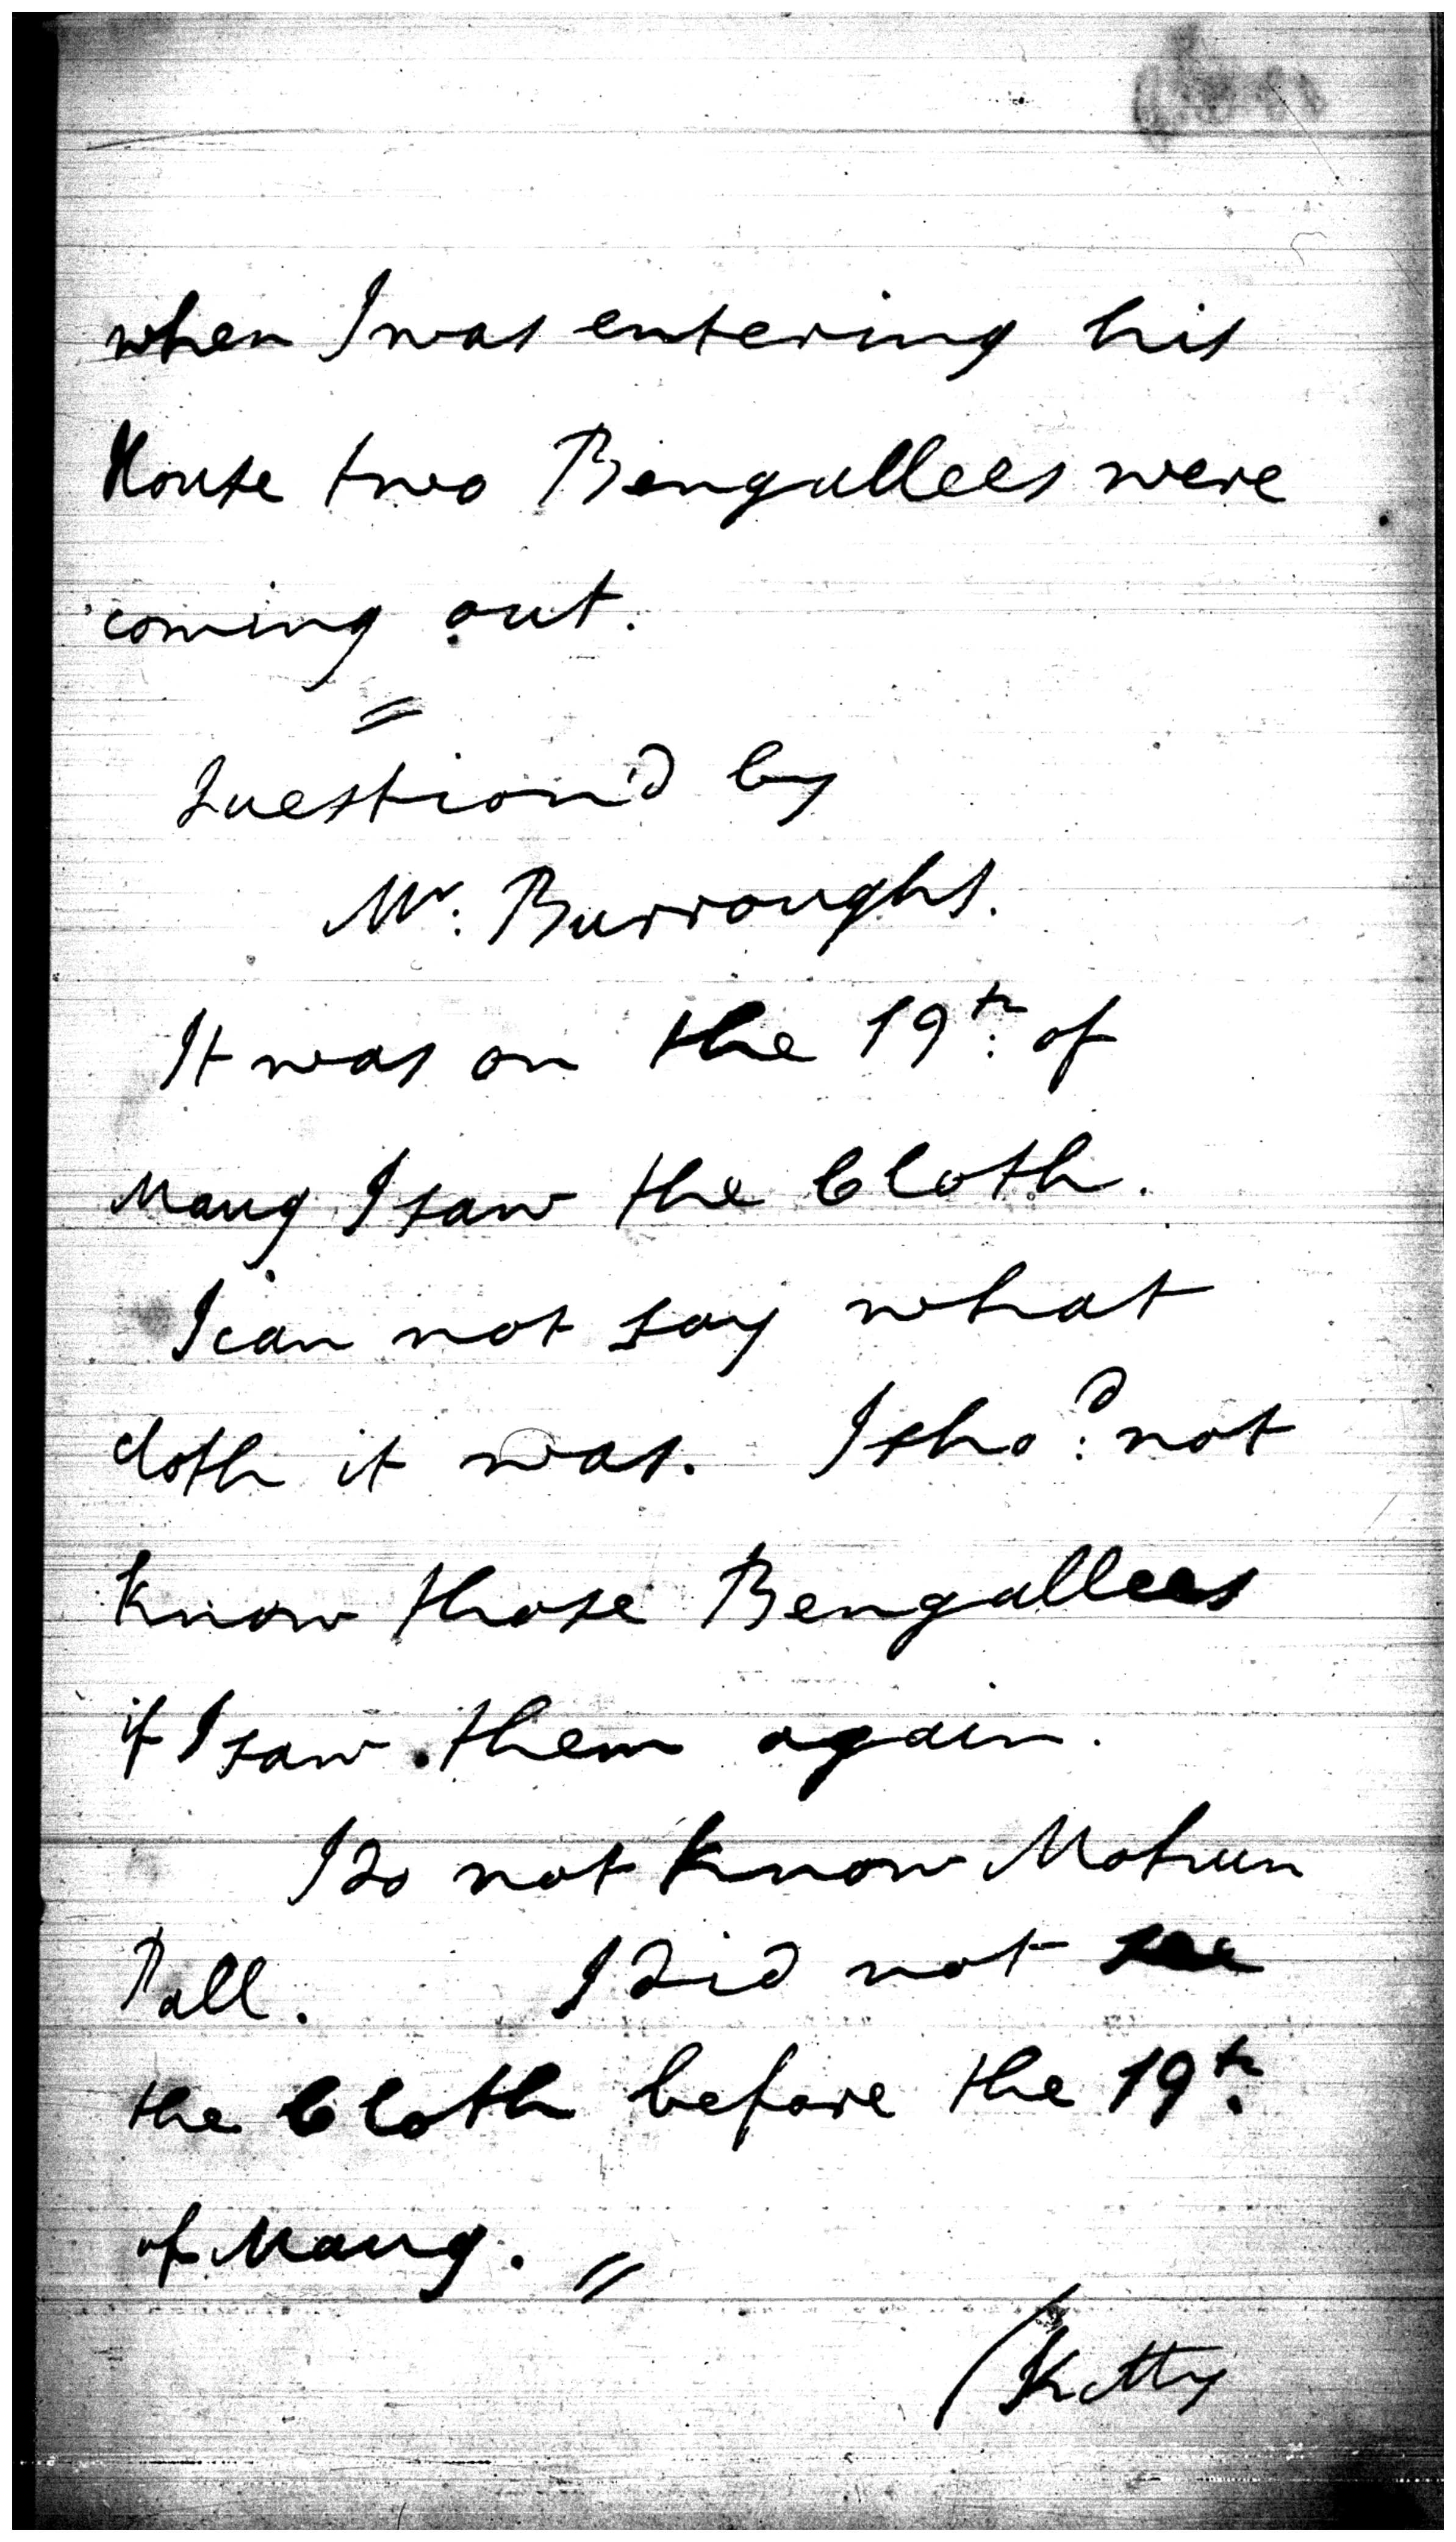 when I was entering his
House two Bengallees were
coming out.
Question'd by
Mr. Burroughs.
It was on the 19th. of
Maug I saw the Cloth.
I can not say what
cloth it was. I sho.d not
know those Bengallees
if I saw them again.
I do not know Mohun
Pall. I did not see
the Cloth before the 19th.
of Maug.
Kitty